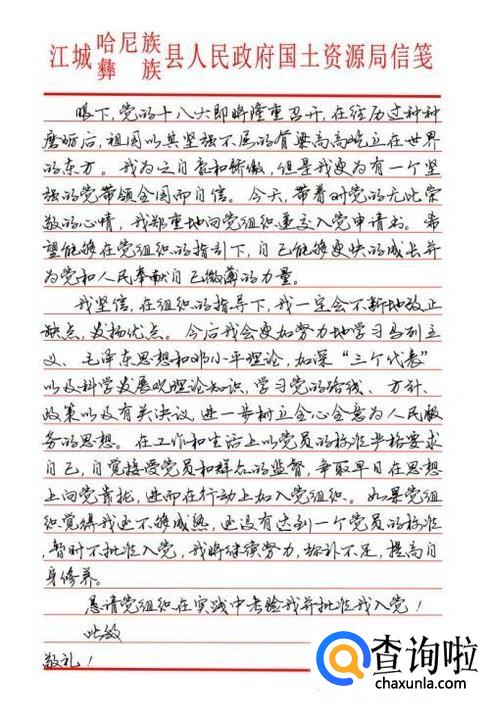 江城哈尼族彝族县人民政府国土资源局信笺
眼下，党的十八大即将隆重召开，在经历过种种
磨砺后，祖国以其坚强不屈的脊梁高高屹立在世界
的东方。我为之自豪和骄傲，但是我更为有一个坚
强的党带领全国而自信。今天，带着对党的无比崇
敬的心情，我郑重地向党组织递交入党申请书。希
望能够在党组织的指引下，自己能够更快的成长并
为党和人民奉献自己微薄的力量。
我坚信，在组织的指导下，我一定会不断地改正
缺点，发扬优点。今后我会更加努力地学习马列主
义、毛泽东思想和邓小平理论，加深“三个代表”
以及科学发展观理论知识，学习党的路线、方针、
政策以及有关决议，进一步树立全心全意为人民服
务的思想。在工作和生活上以党员的标准严格要求
自己，自觉接受党员和群众的监督，争取早日在思想
上向党靠拢，进而在行动上加入党组织。如果党组
织觉得我还不够成熟，还没有达到一个党员的标准，
暂时不批准入党，我将继续努力，弥补不足，提高自
身修养。
恳请党组织在实践中考验我并批准我入党！
此致
敬礼！
查询啦
chaxunla.com